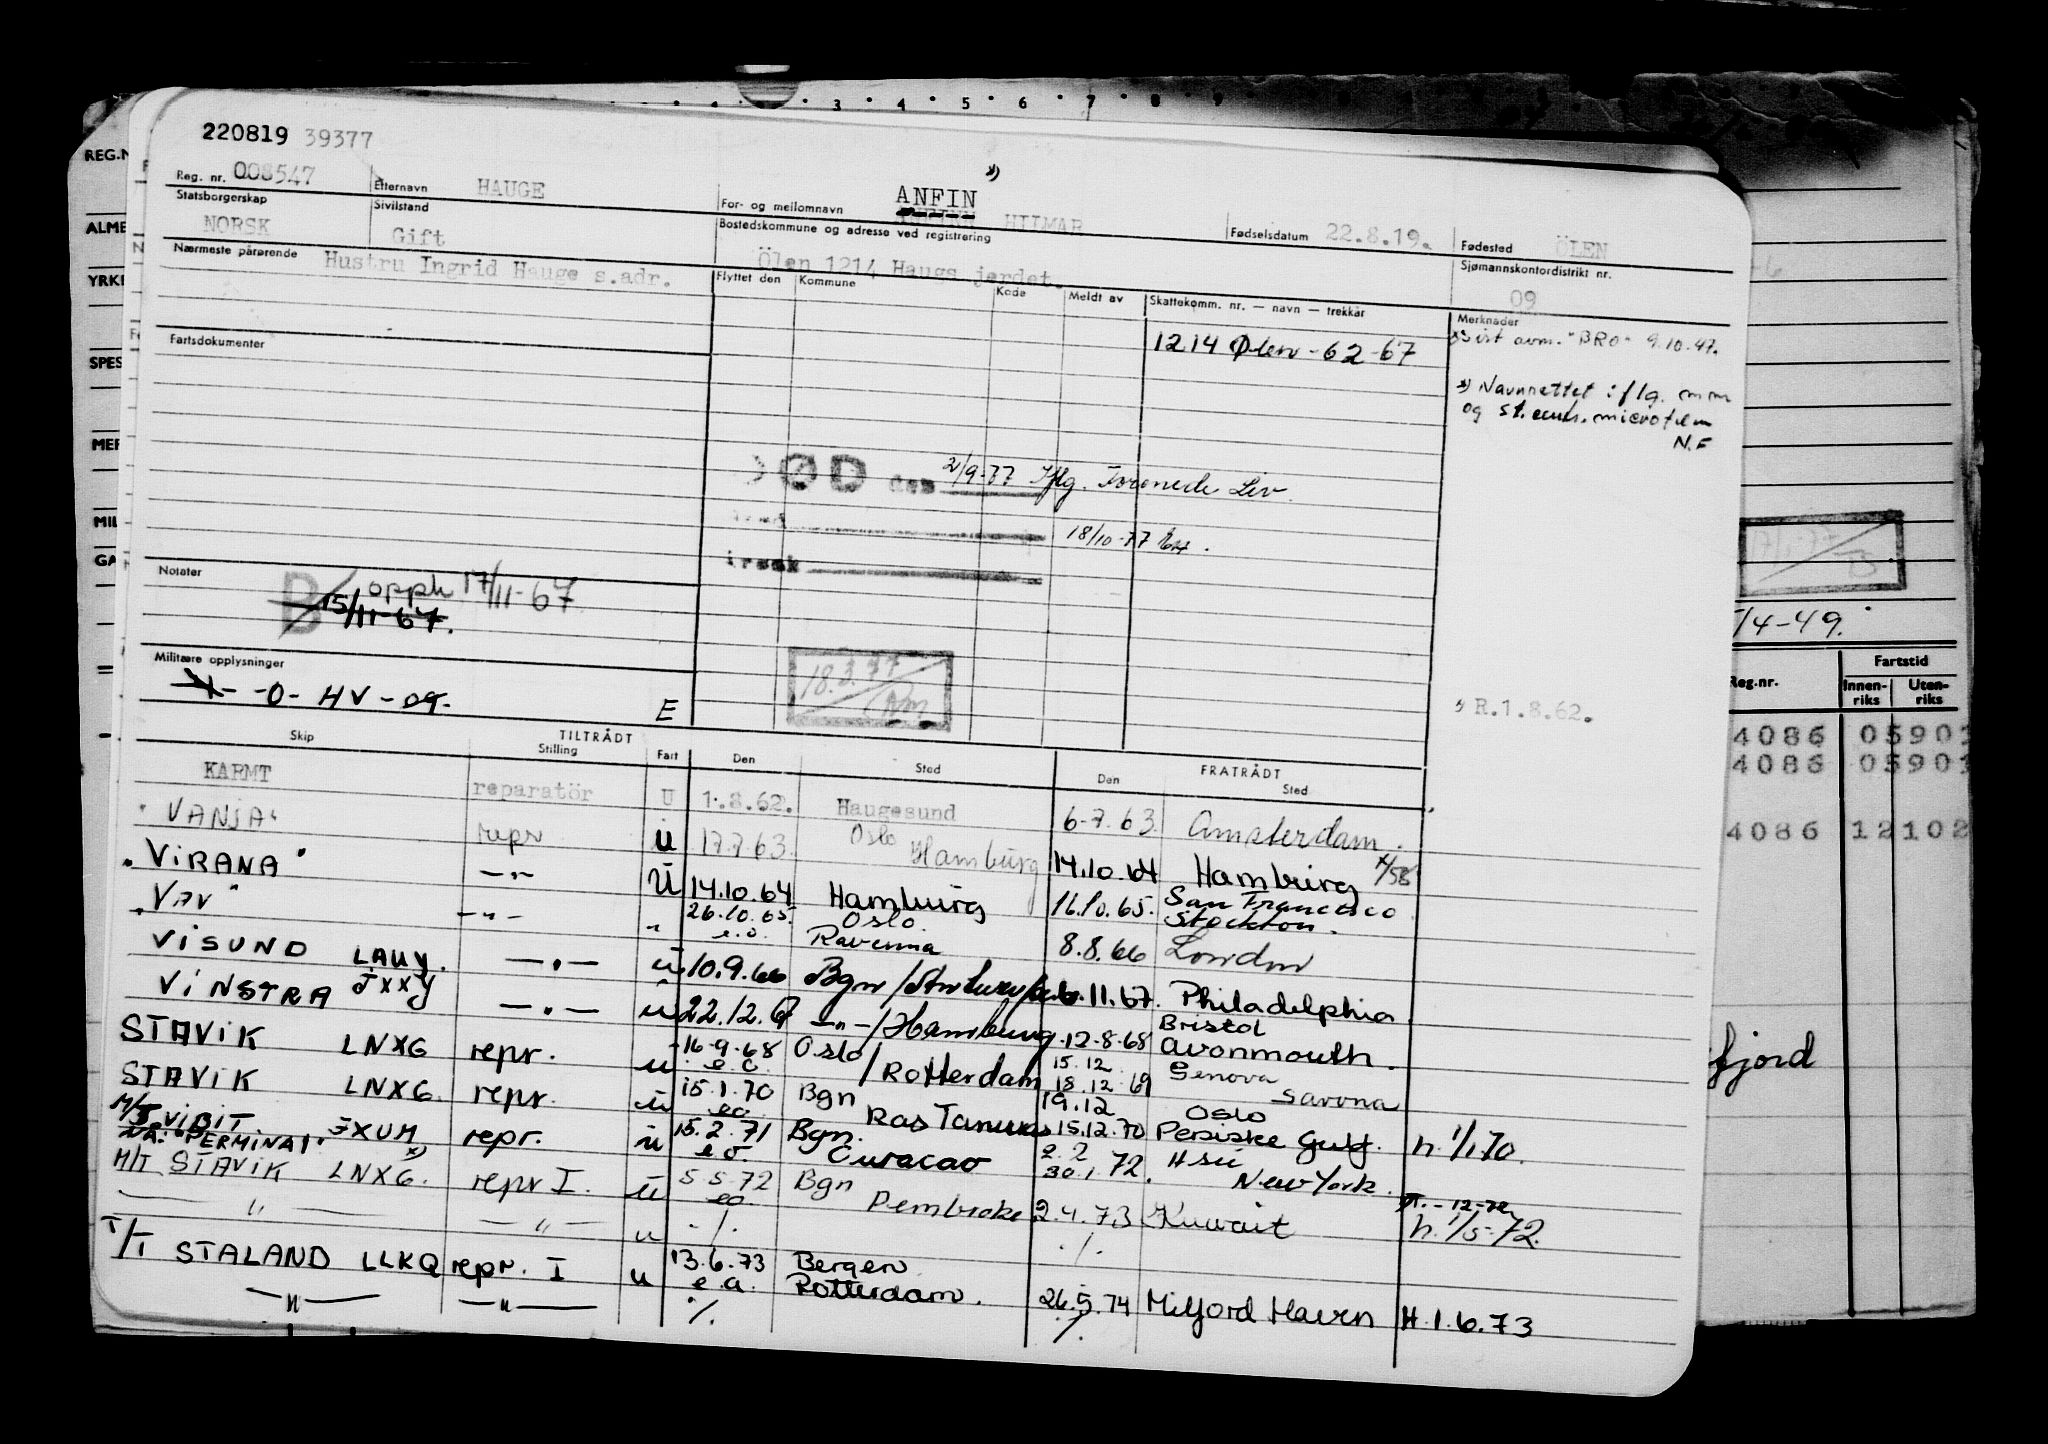 3 4 5 6 7 8 9
220819 39377
Reg. nr. 008547 Etternavn HAUGE For- og mellomnavn ANFIN HILMAR *) Fødselsdatum 22.8.19. Fødested ÖLEN
Statsborgerskap NORSK Sivilstand Gift Bostedskommune og adresse ved registrering Ölen 1214 Haugsjerdet. Sjømannskontordistrikt nr. 09
Nærmeste pårørende Hustru Ingrid Hauge s.adr.
Flyttet den Kommune Kode Meldt av Skattekomm. nr. — navn — trekkår Merknader
1214 Ølen - 62-67
Sist avm. "BRO" 9.10.47.
*) Navnrettet iflg. mm
og st.
microfilm
N.F
Fartsdokumenter
DØD den 2/9-77 Iflg. Forenede Liv.
18/10-77
Notater
B 15/11-67.
opph 17/11-67
Militære opplysninger
-0- HV-09.
E
18.3.77
R.1.8.62.
TILTRÅDT FRATRÅDT
Skip Stilling Fart Den Sted Den Sted
KARMT reparatör U 1.8.62. Haugesund 6-7.63. Amsterdam.
"VANJA" repr u 17.7.63. Oslo Hamburg 14.10.64 Hamburg
"VIRANA" -"- u 14.10.64 Hamburg 16.10.65. San Francisco Stockton.
"VAV" -"- " 26.10.65. e.o. Oslo Ravenna 8.8.66 London
VISUND LAUY. -"- u 10.9.66 Bgn / 6.11.67. Philadelphia
VINSTRA JXXY -"- u 22.12.67 -"-/Hamburg 12-8-68 Bristol Avonmouth.
STAVIK LNXG repr. u 16-9-68 e.o. Oslo / Rotterdam 15.12 18.12.69 Genova Savona
STAVIK LNXG. repr. u 15.1.70 eo Bgn Ras Tanura 19.12 15.12.70 Oslo Persiske Gulf. h. 1/1 70.
M/T VIBIT JXUM repr. u 15.2.71 e.o. Bgn. Curacao 2.2 30.1.72. New York.
NA: "PERMINA I" *)
M/T STAVIK LNXG. repr I. u 5.5.72 eo Bgn Pembroke 2.4.73 Kuwait h. 1/5-72.
-12-72
—"— —"— u ./. ./.
T/T STALAND LLKQ repr. I u 13.6.73 e.o. Bergen Rotterdam. 26.5.74 Milford Haven H.1.6.73
—"— —"— ./. ./.
REG.N
ALME
YRKE
SPES
MER
MIL
GA
17/1-77
/4-49.
Reg.nr. Fartstid
Innen-riks Uten-riks
4086 05901
4086 05901
4086 12102
fjord